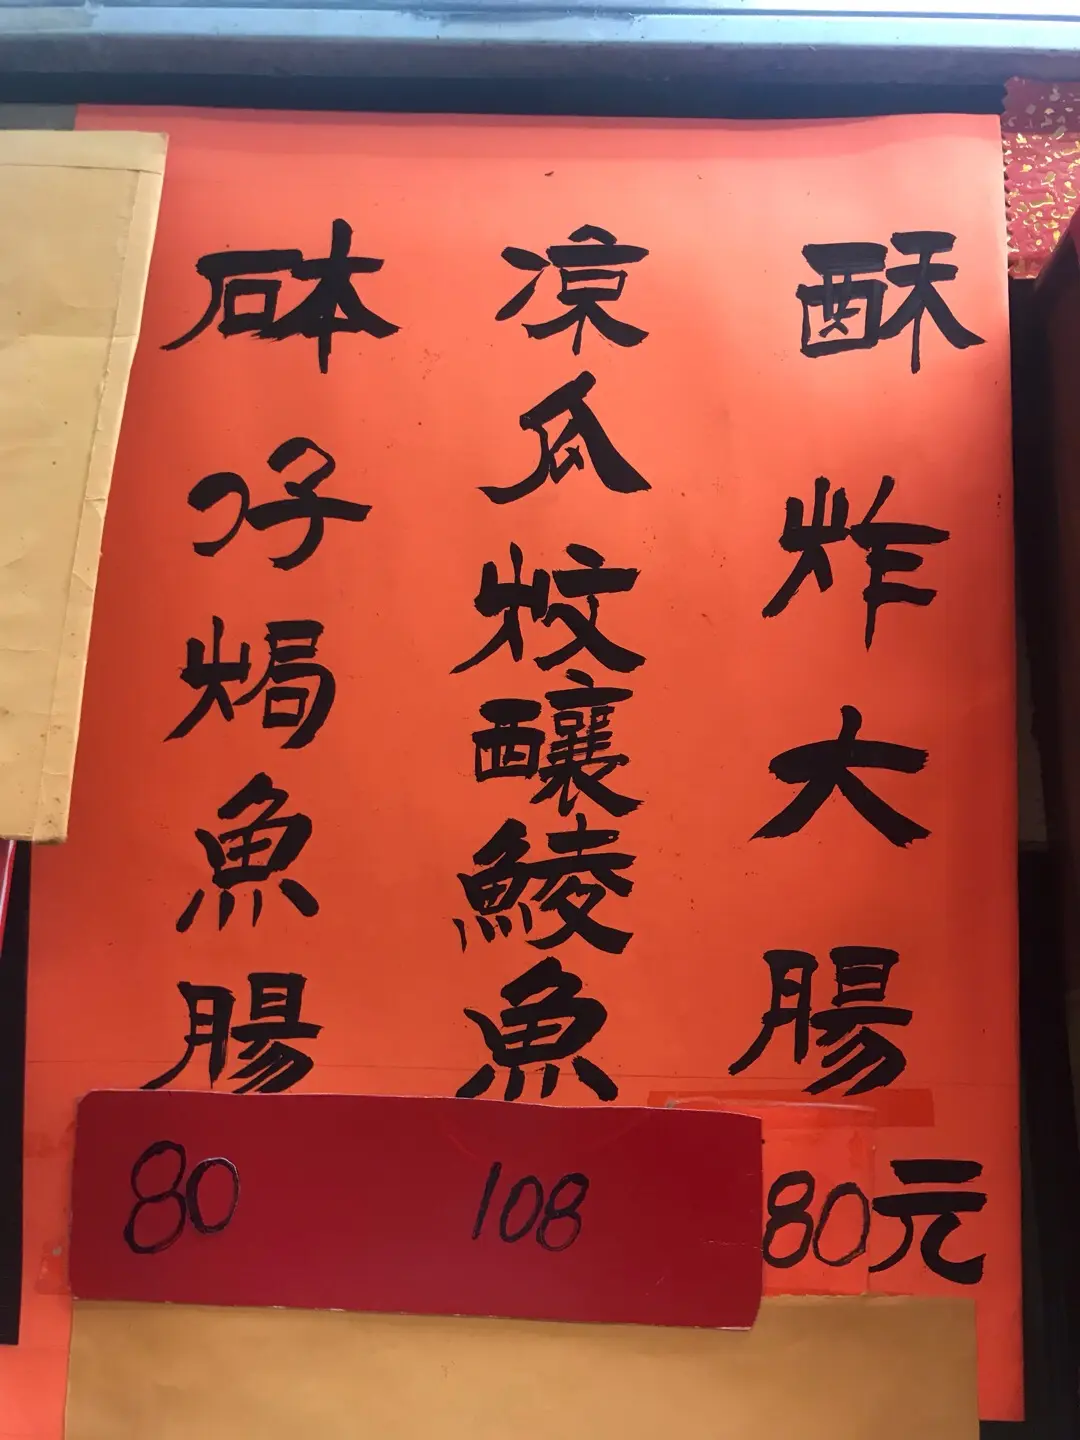 酥炸大腸
80元
凉瓜炆釀鯪魚
108
砵仔焗魚腸
80